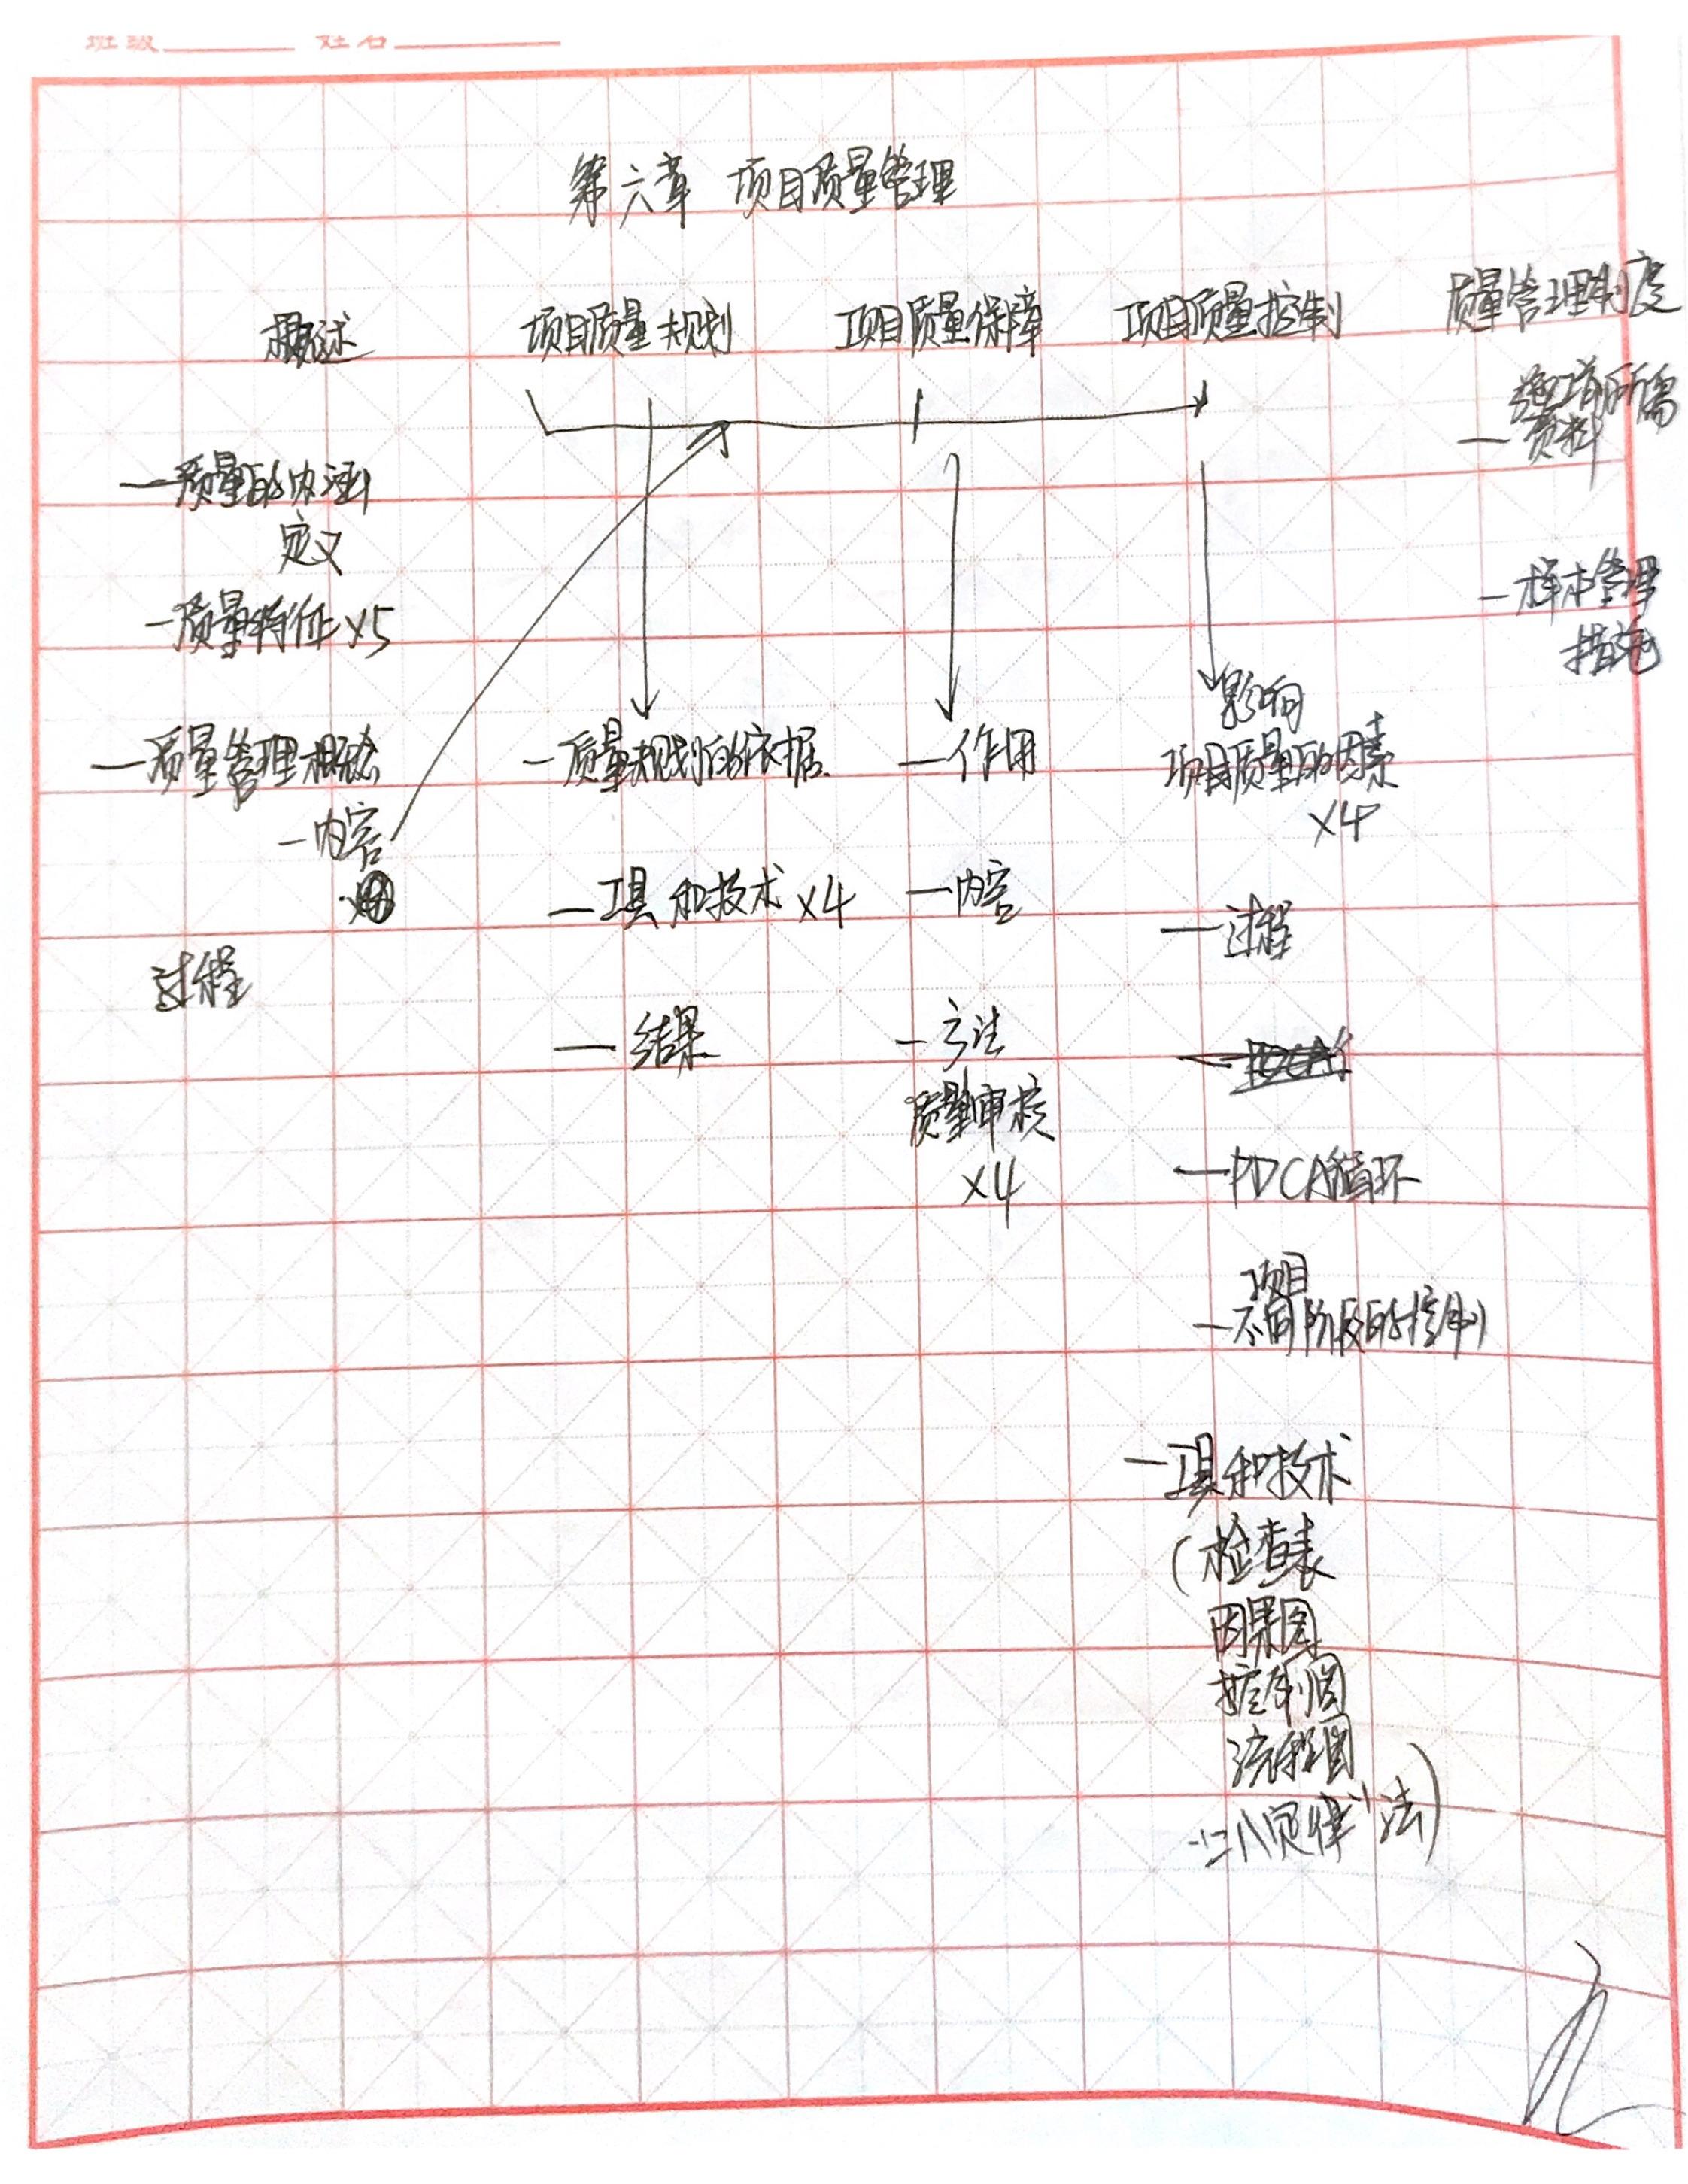 班级 姓名
第六章 项目质量管理
概述
—质量的内涵
定义
—质量特征x5
—质量管理概念
—内容
过程
项目质量规划
—质量规划的依据
—工具和技术x4
—结果
项目质量保障
—作用
—内容
—方法
质量审核
x4
项目质量控制
影响
项目质量的因素
x4
—过程
—PDCA循环
项目
—不同阶段的控制
—工具和技术
(检查表
因果图
控制图
流程图
“二八定律”法)
质量管理制度
所需
— 资料
—样本管理
措施